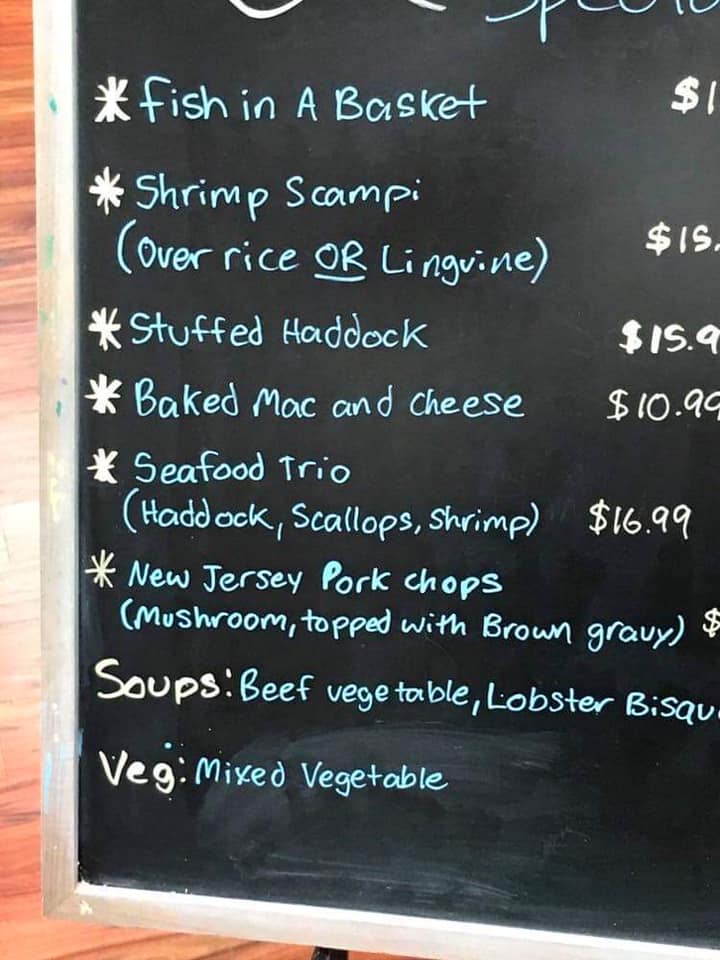 * Fish in A Basket $1
* Shrimp Scampi
(Over rice OR Linguine) $15.
* Stuffed Haddock $15.9
* Baked Mac and Cheese $10.99
* Seafood Trio
(Haddock, Scallops, Shrimp) $16.99
* New Jersey Pork chops
(Mushroom, topped with Brown gravy) $
Soups: Beef vegetable, Lobster Bisqu
Veg: Mixed Vegetable